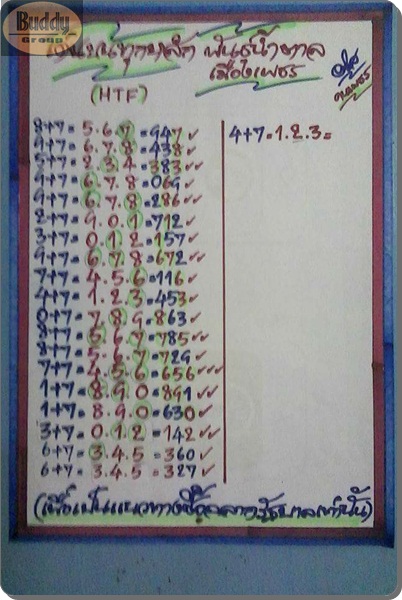 Buddy
Group
เมืองเพชร
(HTF)
8+7= 5.6.7=947✓
9+7= 6.7.8=438✓
5+7= 2.3.4=383✓✓
9+7= 6.7.8=069✓
9+7= 6.7.8=286✓✓
2+7= 9.0.1=712✓
3+7= 0.1.2=157✓
9+7= 6.7.8=672✓✓
7+7= 4.5.6=116✓
4+7= 1.2.3=453✓
0+7= 7.8.9=863✓
8+7= 5.6.7=785✓✓
8+7= 5.6.7=729✓
7+7= 4.5.6=656✓✓✓
1+7= 8.9.0=891✓✓
1+7= 8.9.0=630✓✓
3+7= 0.1.2=142✓✓
6+7= 3.4.5=360✓
6+7= 3.4.5=327✓
4+7=1.2.3=
(เพื่อเป็นแนวทางซื้อสลากรัฐบาลเท่านั้น)